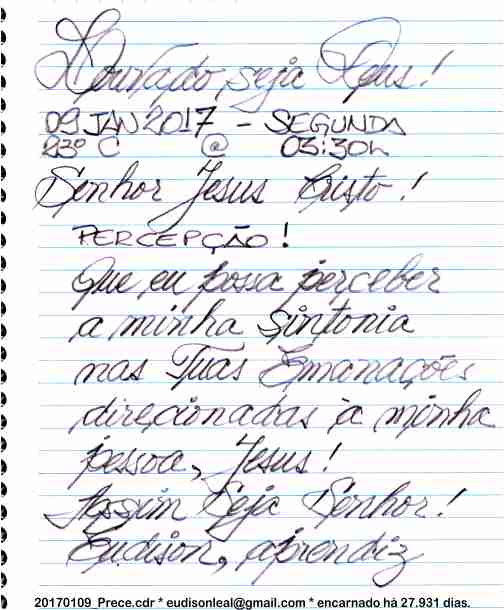 Louvado seja Deus!
09 JAN 2017 - SEGUNDA
23º C @ 03:30h
Senhor Jesus Cristo!
PERCEPÇÃO!
Que eu possa perceber
a minha Sintonia
nas Tuas Emanações
direcionadas à minha
pessoa, Jesus!
Assim Seja Senhor!
Eudison, aprendiz
20170109_Prece.cdr * eudisonleal@gmail.com * encarnado há 27.931 dias.